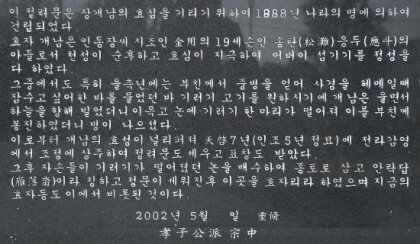 이 정려문은 장개남의 효심을 기리기 위하여 1988년 나라의 명에 의하여
건립됐다.
효자 개남은 인동장씨 시조인 金用의 19세손인 송탄(松灘)응두(應斗)의
아들로서 천성이 순후하고 효심이 지극하여 어버이 섬기기를 정성을
다 하였다.
그중에서도 특히 을축년에는 부친께서 중병을 얻어 사경을 헤메일때
잡수고 싶어한 바를 물었던 바 기러기 고기를 원하시기에 개남은 울면서
하늘을 향해 빌었더니 이윽고 논에 기러기 한 마리가 떨어져 이를 부친께
봉친하였더니 병이 나으셨다.
이로부터 개남의 효성이 널리 퍼져 天啓7년(인조5년 정묘)에 전라감영
에서 조정에 상주하여 정려문도 세우고 표창도 받았다.
그후 자손들이 기러기가 떨어졌던 논을 매수하여 종토로 삼고 안락답
(雁落畓)이라 칭하고 정문이 세워진후 이곳을 효자리라 하였으며 지금의
효자동도 이에서 비롯된 것이다.
2002년 5월 일 重修
孝子公派 宗中